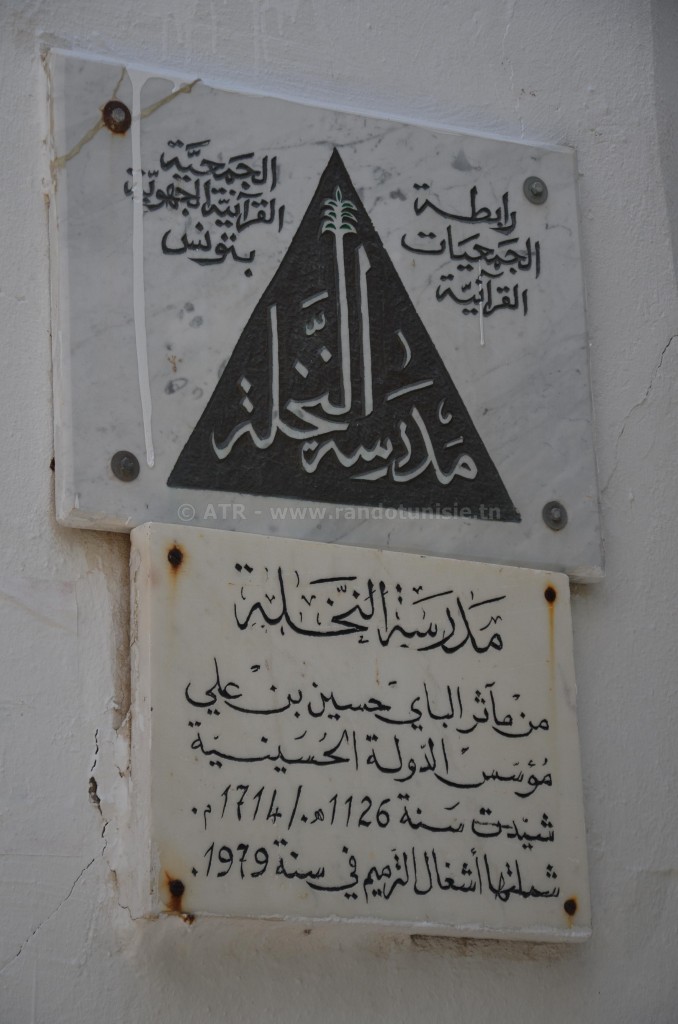 رابطة
الجمعيات
القرآنيّة
الجمعيَّة
القرآنيّة الجهويّة
بتونس
مَدرَسة النَّخلة
© ATR - www.randotunisie.tn
مَدرَسَة النَّخَلة
من مآثر الباي حسين بن علي
مؤسّس الدّولة الحُسَينيّة
شيّدت سَنة 1126هـ./1714م.
شملتها أشغال الترميم في سنة 1979.